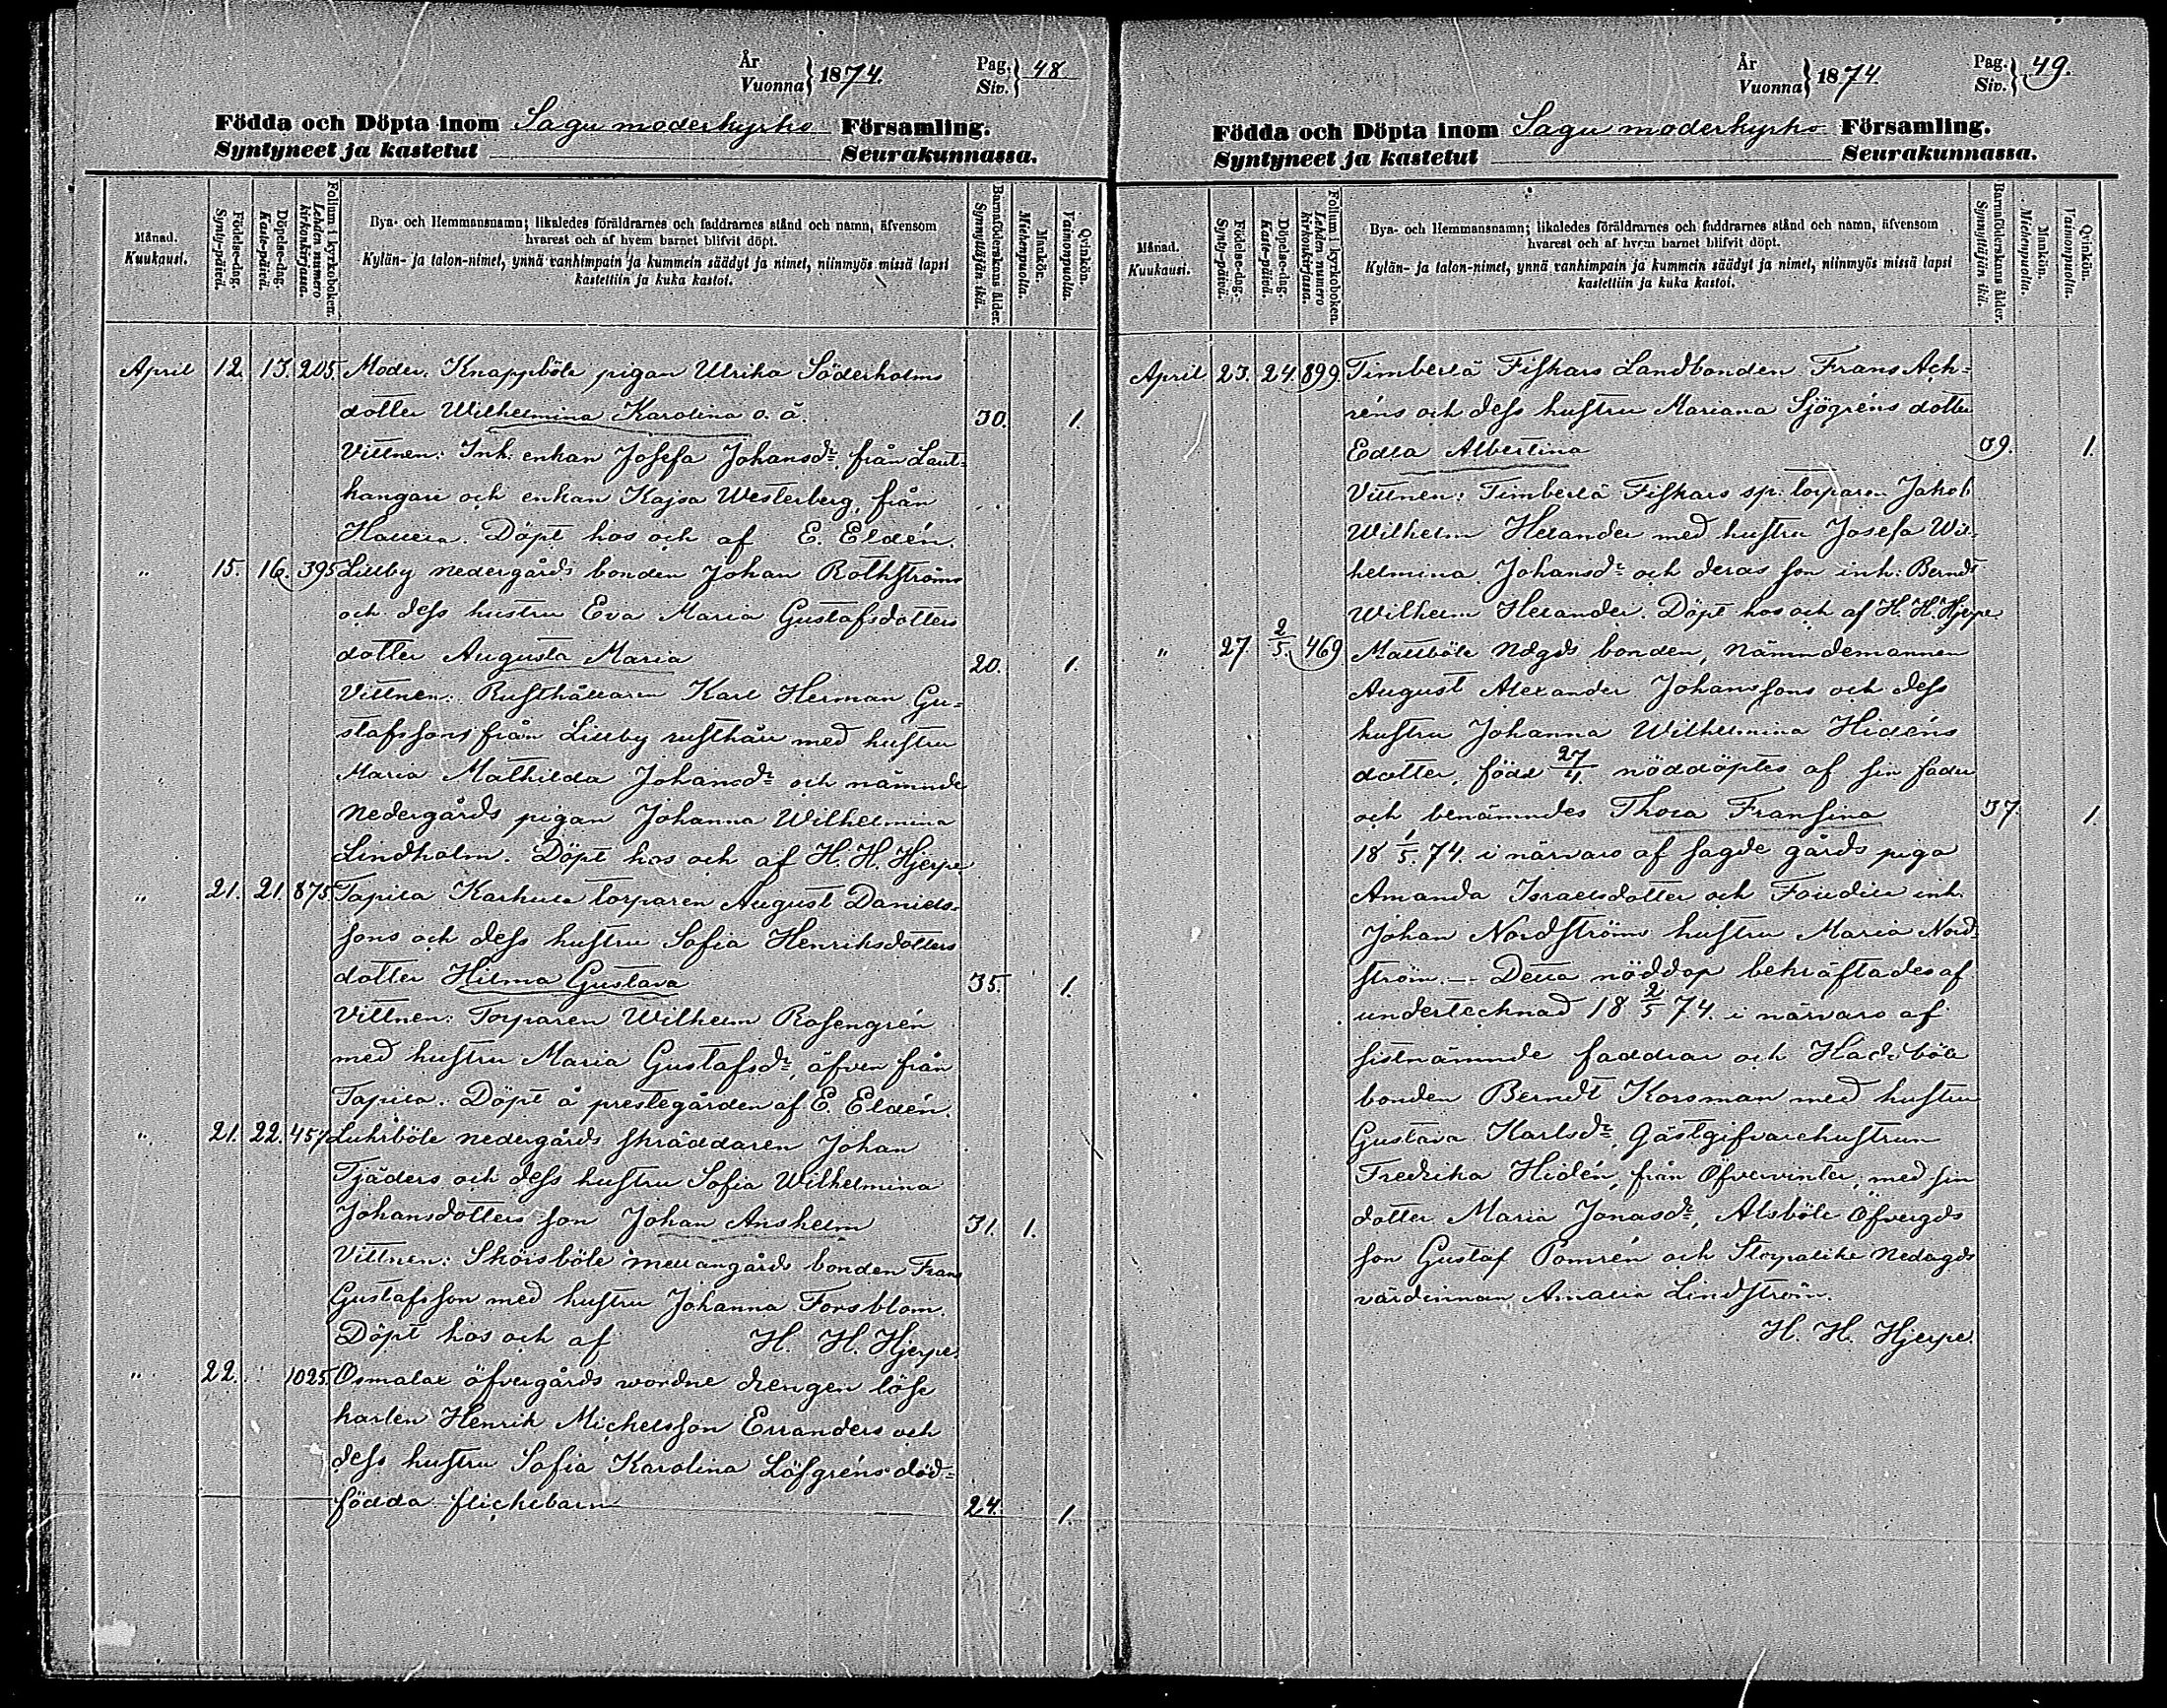 År
Vuonna } 1874.
Pag.
Siv. } 48
Födda och Döpta inom Sagu moderkyrko Församling.
Syntyneet ja kastetut Seurakunnassa.
Månad.
Kuukausi.
Födelse-dag.
Synty-päivä.
Döpelse-dag.
Kaste-päivä.
Folium i kyrkoboken.
Lehden numero kirkonkirjassa.
Bya- och Hemmansnamn; likaledes föräldrarnes och faddrarnes stånd och namn, äfvensom
hvarest och af hvem barnet blifvit döpt.
Kylän- ja talon-nimet, ynnä vanhimpain ja kummein säädyt ja nimet, niinmyös missä lapsi
kastettiin ja kuka kastoi.
Barnaföderskans ålder.
Synnyttäjän ikä.
Mankön.
Miehenpuolia.
Qvinkön.
Vaimonpuolia.
April 12. 13. 205. Moder. Knappböle pigan Ulrika Söderholms
dotter Wilhelmina Karolina o. ä. 30. 1.
Vittnen: Inh. enkan Josefa Johansdr från Laut-
kangari och enkan Kajsa Westerberg, från
Döpt hos och af E. Eldén.
" 15. 16. 395 Lillby nedergårds bonden Johan Rothströms
och dess hustru Eva Maria Gustafsdotters
dotter Augusta Maria 20. 1.
Vittnen: Rusthållaren Karl Herman Gu-
stafssons från Lillby rusthåll med hustru
Maria Mathilda Johansdr och nämnde
nedergårds pigan Johanna Wilhelmina
Lindholm. Döpt hos och af H. H. Hjerpe
" 21. 21. 875. Tapila Karhula torparen August Daniels-
sons och dess hustru Sofia Henriksdotters
dotter Hilma Gustava 35. 1.
Vittnen: Torparen Wilhelm Rosengrén
med hustru Maria Gustafsdr, äfven från
Tapila. Döpt å prestegården af E. Eldén.
" 21. 22. 457 Luhrböle nedergårds skräddaren Johan
Tjäders och dess hustru Sofia Wilhelmina
Johansdotters son Johan Anshelm 31. 1.
Vittnen: Sköisböle mellangårds bonden Frans
Gustafsson med hustru Johanna Forsblom.
Döpt hos och af H. H. Hjerpe.
" 22. 1025. Osmalax öfvergårds vordne drengen löse
karlen Henrik Michelsson Erranders och
dess hustru Sofia Karolina Löfgréns död-
födda flickebarn 24. 1.
År
Vuonna } 1874
Pag.
Siv. } 49.
Födda och Döpta inom Sagu moderkyrko Församling.
Syntyneet ja kastetut Seurakunnassa.
Månad.
Kuukausi.
Födelse-dag.
Synty-päivä.
Döpelse-dag.
Kaste-päivä.
Folium i kyrkoboken.
Lehden numero kirkonkirjassa.
Bya- och Hemmansnamn; likaledes föräldrarnes och faddrarnes stånd och namn, äfvensom
hvarest och af hvem barnet blifvit döpt.
Kylän- ja talon-nimet, ynnä vanhimpain ja kummein säädyt ja nimet, niinmyös missä lapsi
kastettiin ja kuka kastoi.
Barnaföderskans ålder.
Synnyttäjän ikä.
Mankön.
Miehenpuolia.
Qvinkön.
Vaimonpuolia.
April 23. 24. 899. Timberlä Fiskars Landbonden Frans Ack-
réns och dess hustru Mariana Sjögréns dotter
Edla Albertina 39. 1.
Vittnen: Timberlä Fiskars sp: torparen Jakob
Wilhelm Helander med hustru Josefa Wil-
helmina Johansdr och deras son inh: Berndt
Wilhelm Helander. Döpt hos och af H. H. Hjerpe
" 27 2/5. 469 Mattböle Ndgds bonden, nämndemannen
August Alexander Johanssons och dess
hustru Johanna Wilhelmina Hidéns
dotter, född 27/4. nöddöptes af sin fader
och benämndes Thora Fransina 37. 1.
18 1/5. 74. i närvaro af sagde gårds piga
Amanda Israelsdotter och inh.
Johan Nordströms hustru Maria Nord-
ström. — Detta nöddop bekräftades af
undertecknad 18 2/5 74. i närvaro af
sistnämnde faddrar och
bonden Berndt Korsman med hustru
Gustava Karlsdr, Gästgifvarehustrun
Fredrika Hidén, från Öfvervinter, med sin
dotter Maria Jonasdr, Alsböle Öfvergds
son Gustaf Pomrén och Nedagds
värdinnan Amalia Lindström.
H. H. Hjerpe.